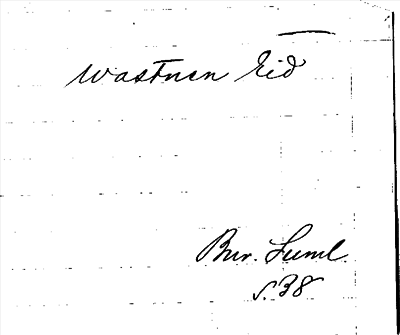 Wastnen Eid
Bur. Suml.
s. 38